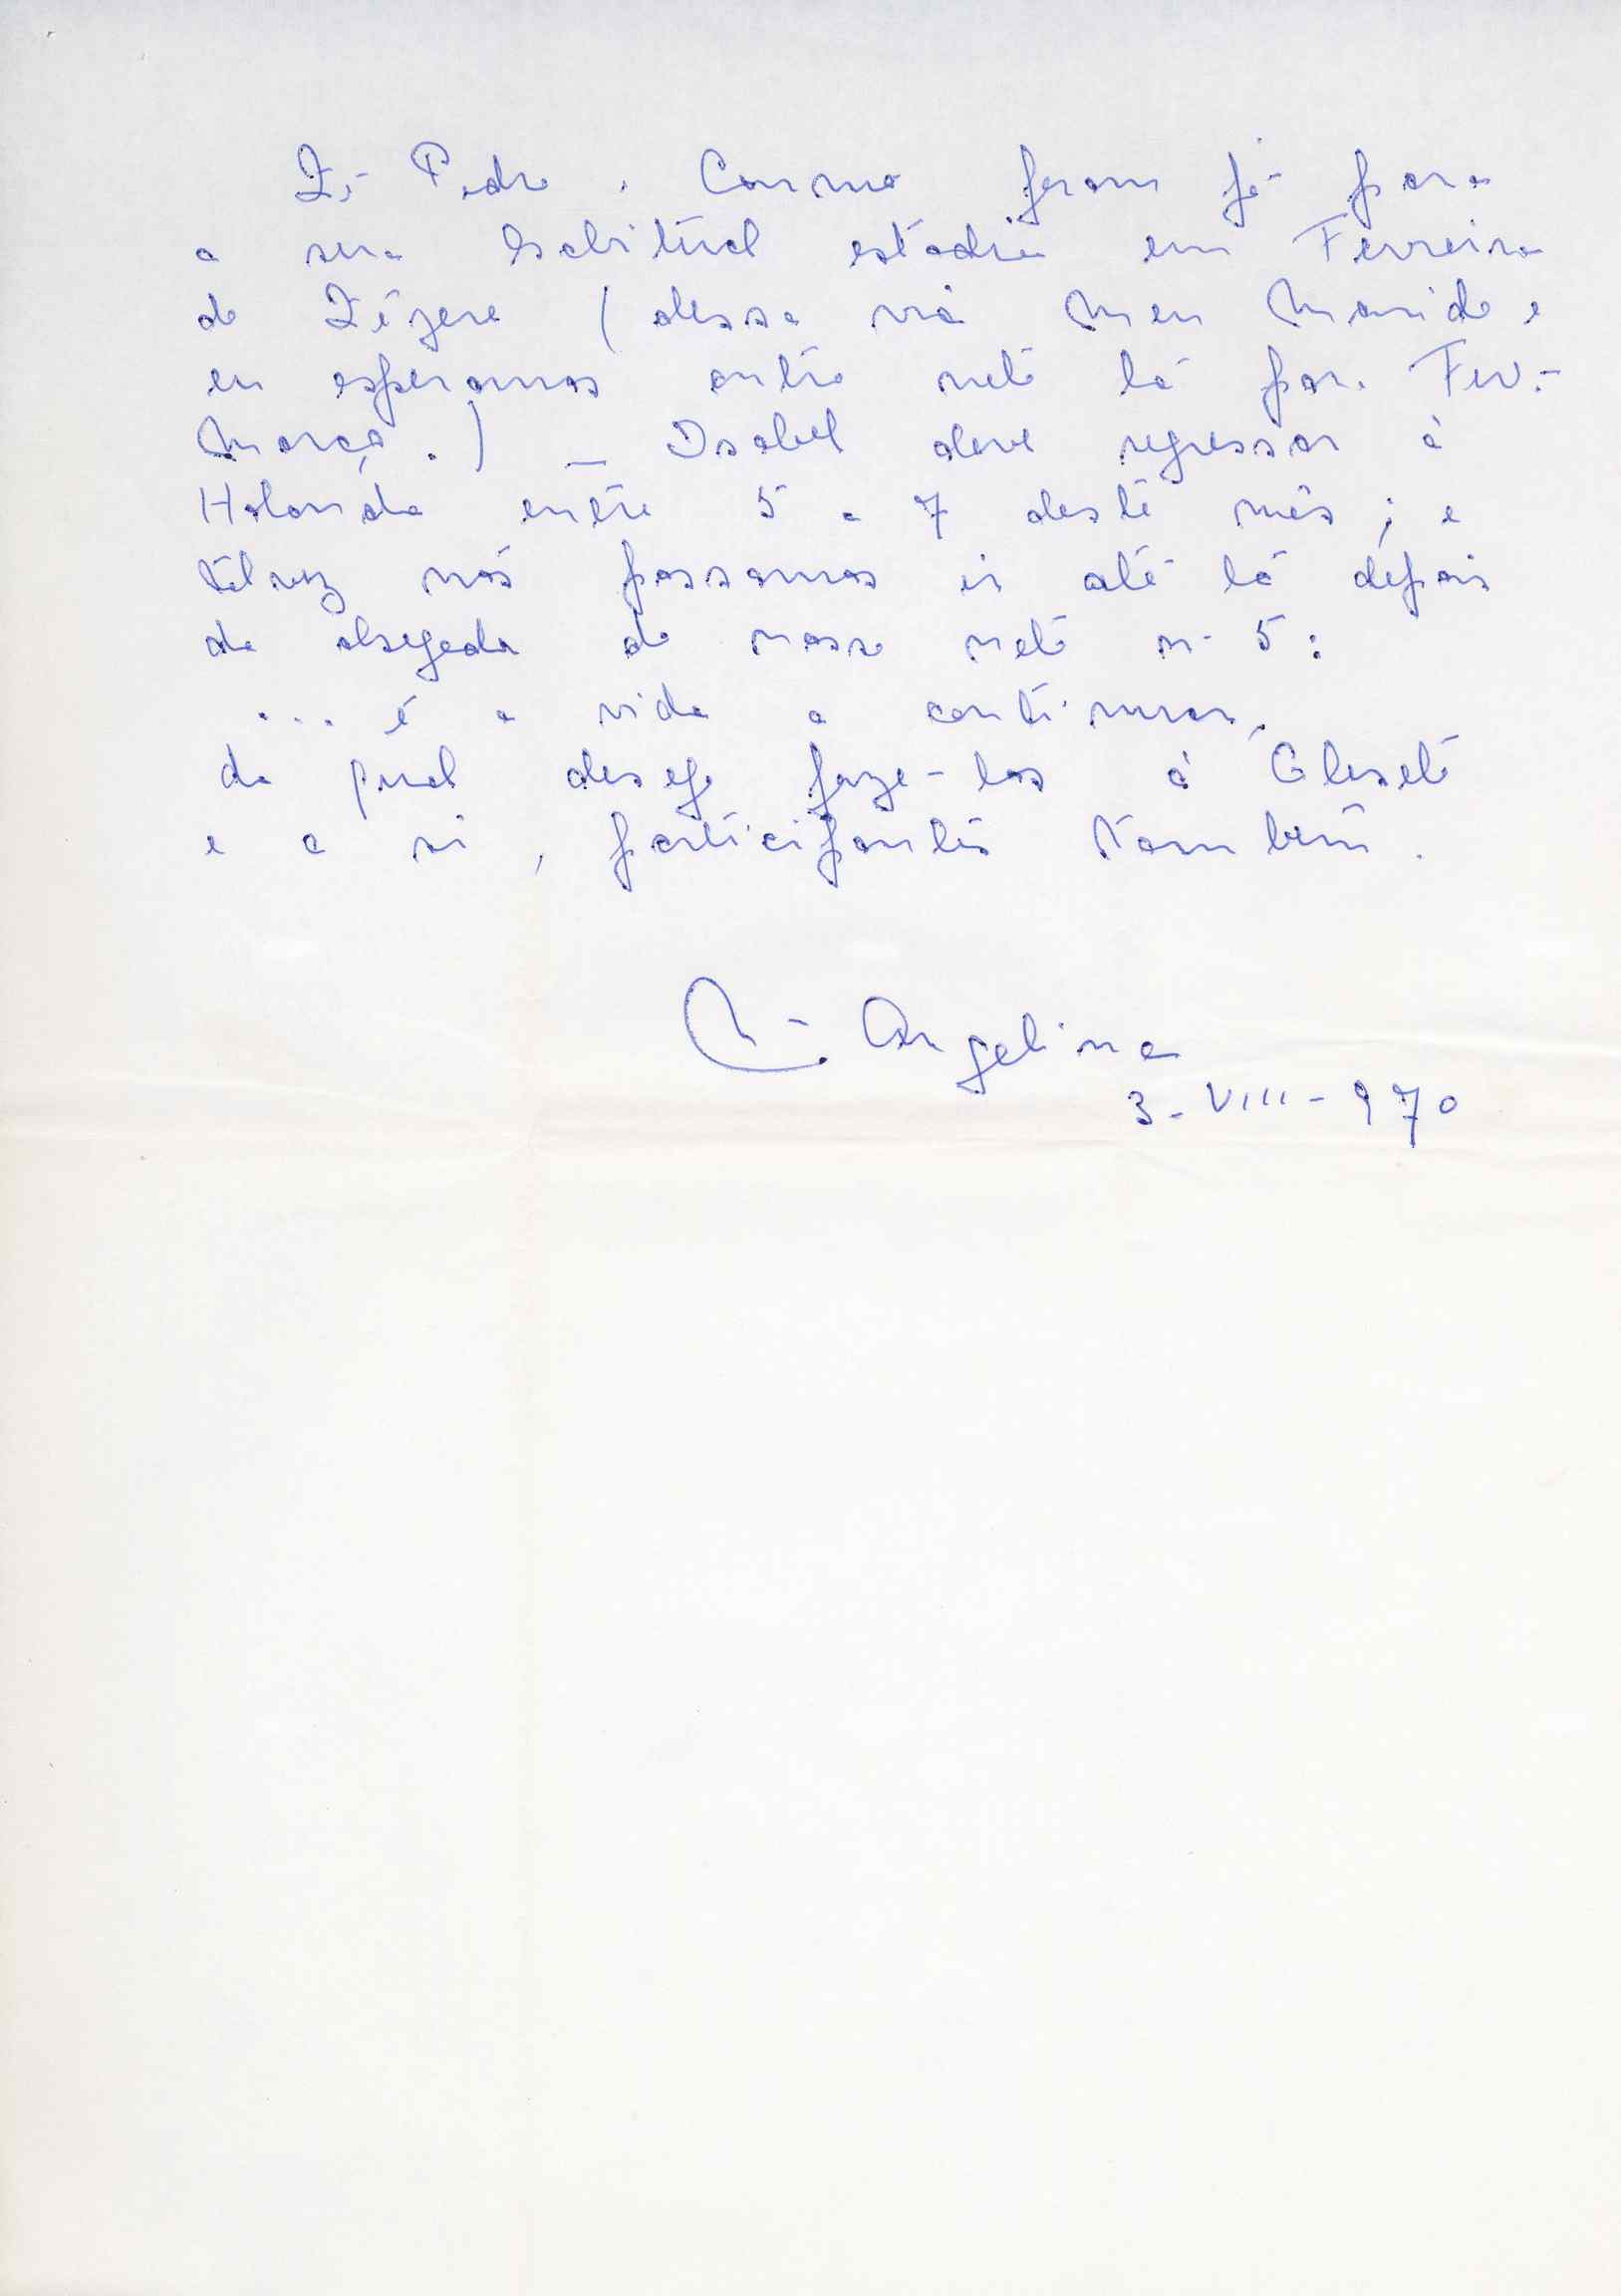 Zé Pedro e Carmo foram já para
a sua habitual estadia em Ferreira
do Zêzere (dessa via meu Marido e
eu esperamos outro neto lá para Fev.-
Março.) _ Isabel deve regressar à
Holanda entre 5 a 7 deste mês; e
talvez nós possamos ir até lá depois
da chegada do nosso neto nº 5:
... é a vida a continuar,
da qual desejo fazê-los à
e a si, participantes também.
Mª. Angelina
3-VIII-970